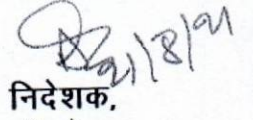 21/8/21
निदेशक,